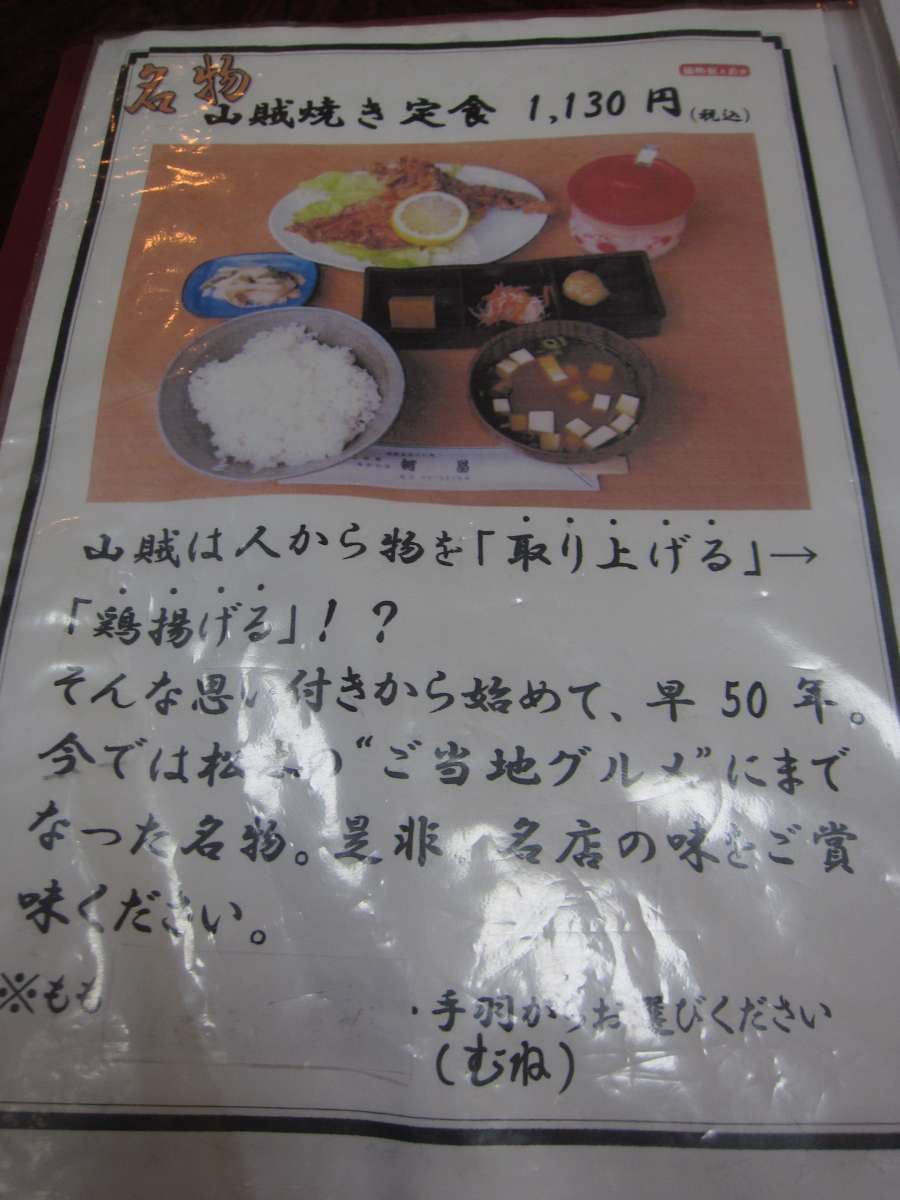 名物
山賊焼き定食 1,130円(税込)
山賊は人から物を「取り上げる」→
「鶏揚げる」!?
そんな思い付きから始めて、早50年。
今では松本の“ご当地グルメ”にまで
なった名物。是非、名店の味をご賞
味ください。
※もも ・手羽からお選びください
(むね)